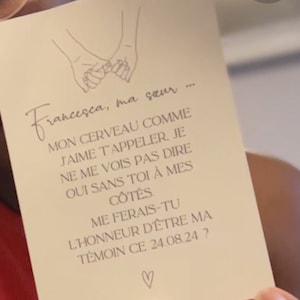 Francesca, ma sœur ...
MON CERVEAU COMME
J'AIME T'APPELER, JE
NE ME VOIS PAS DIRE
OUI SANS TOI À MES
CÔTÉS.
ME FERAIS-TU
L'HONNEUR D'ÊTRE MA
TÉMOIN CE 24.08.24 ?